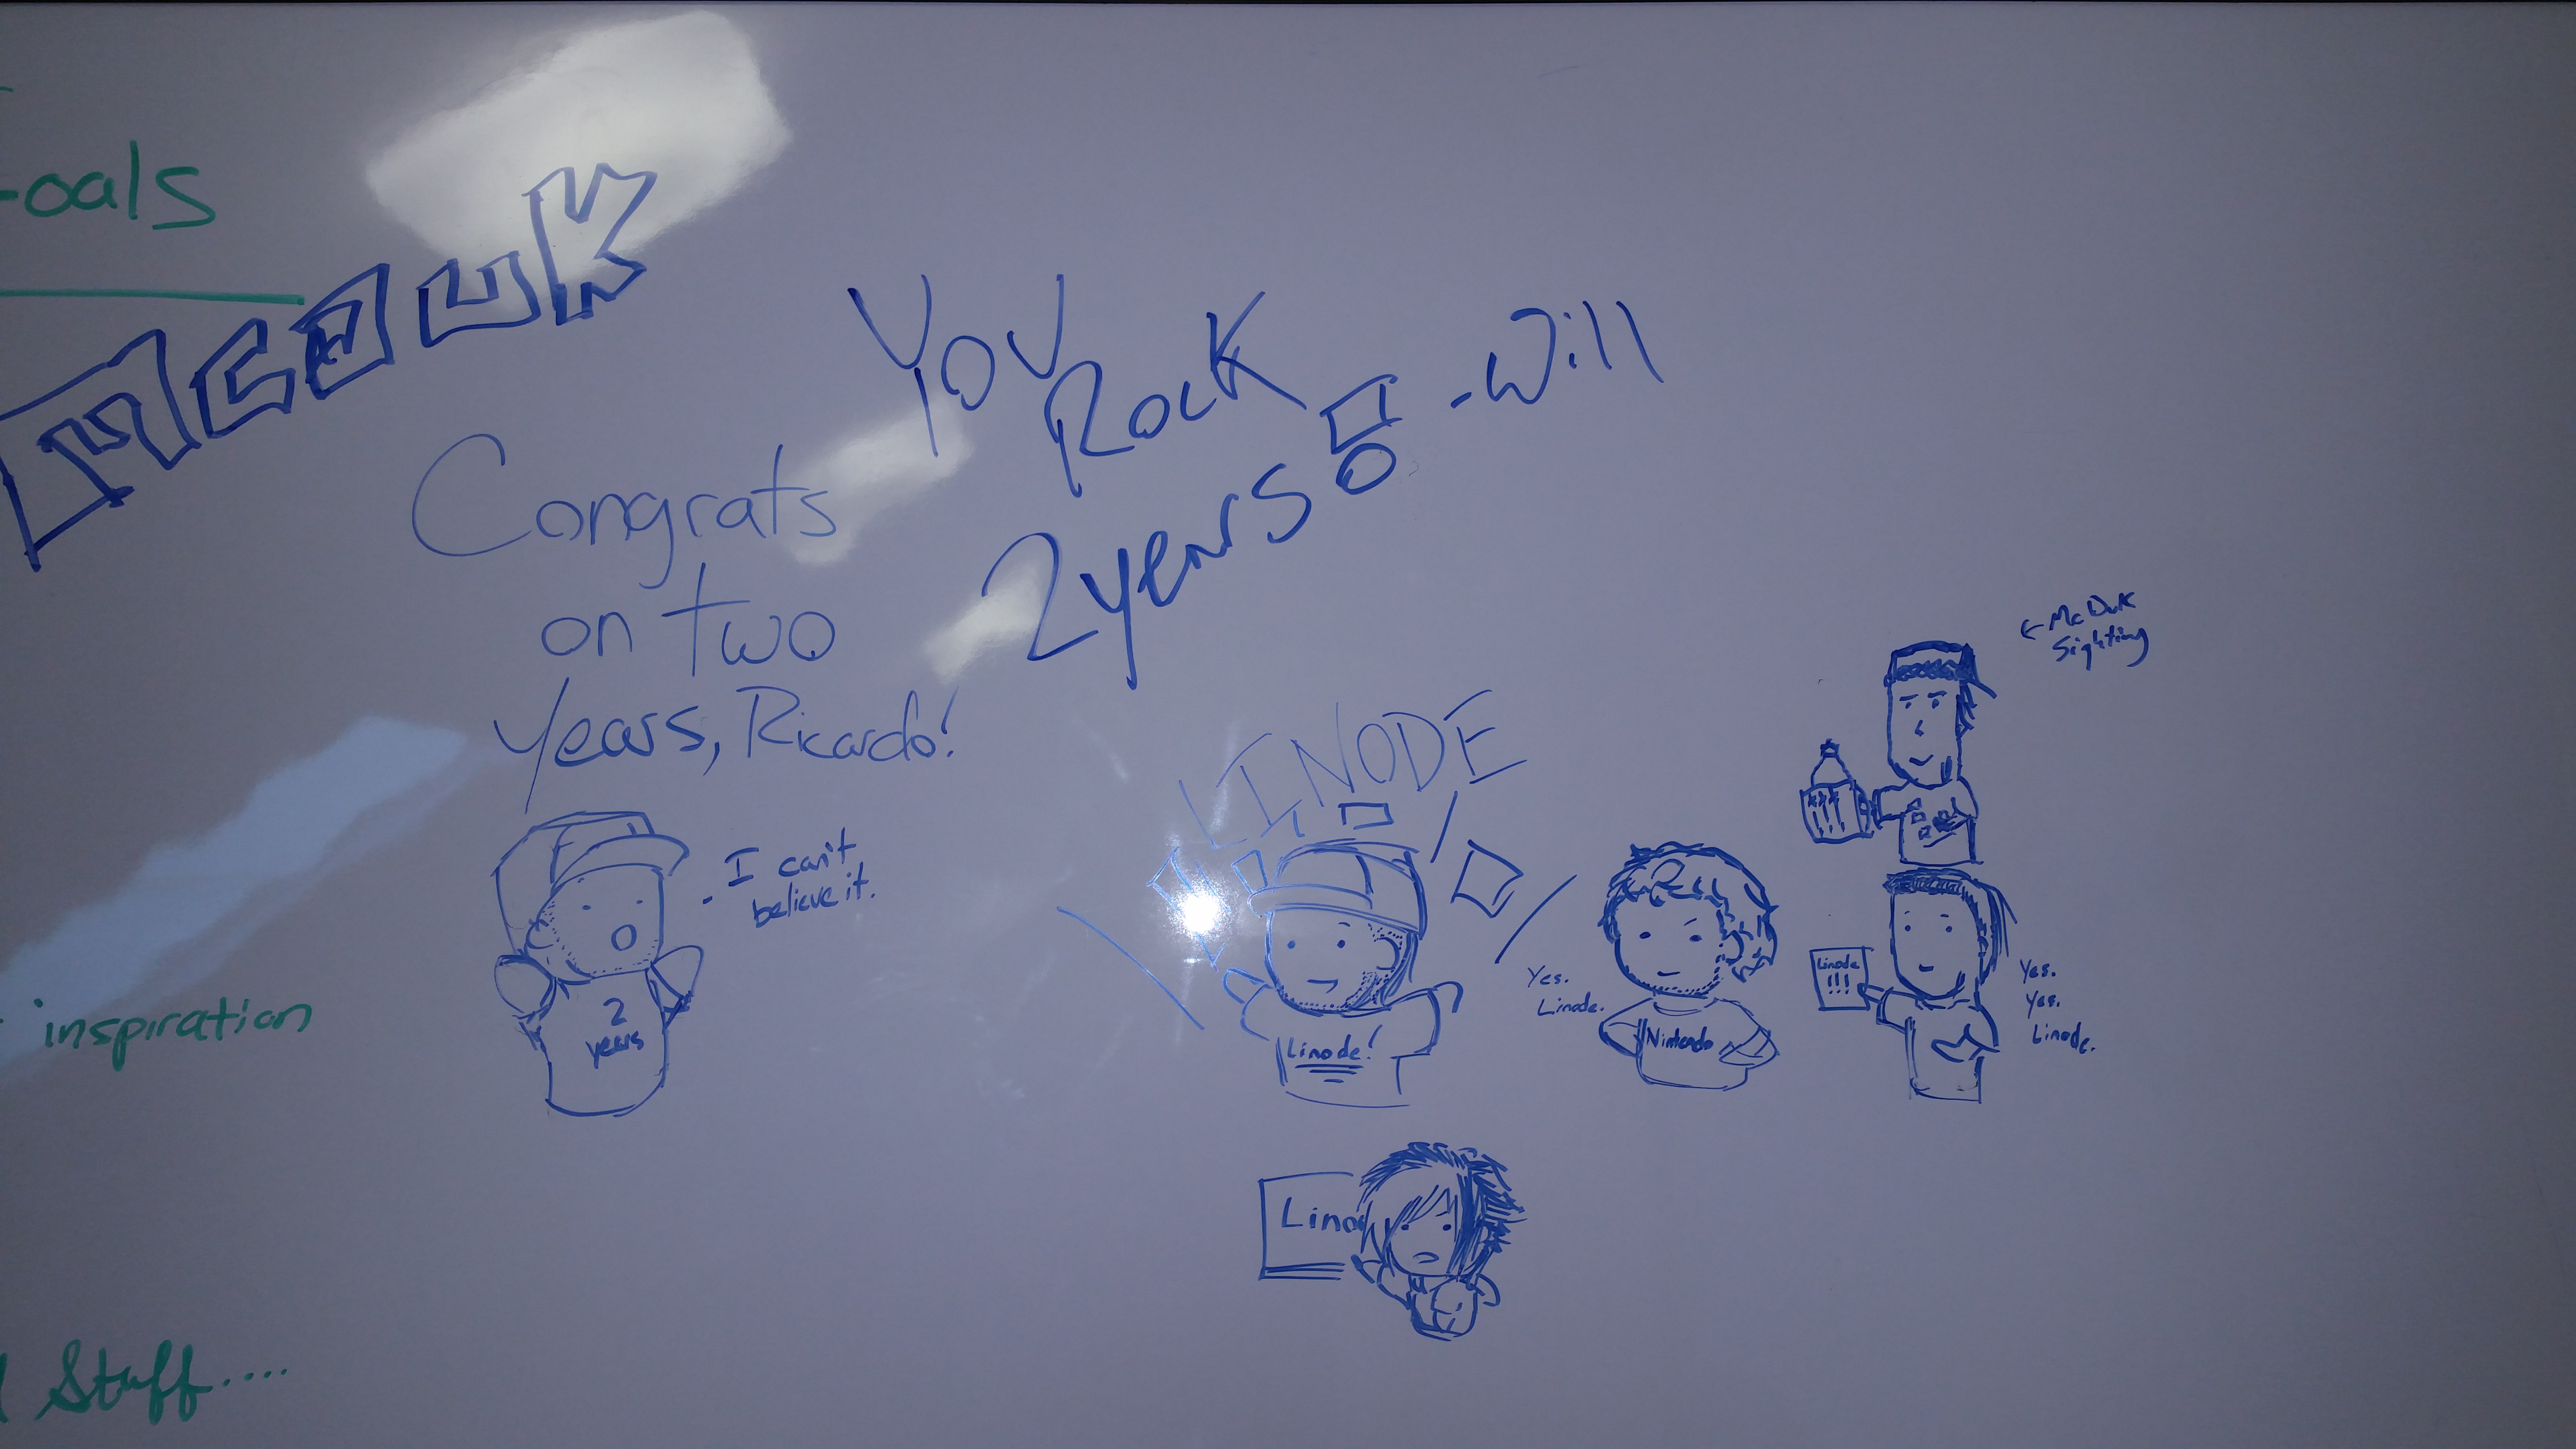 oals
McDUK
You
Rock
2 years
-Will
Congrats
on two
years, Ricardo!
- I can't
believe it.
2
years
LINODE
Linode!
Yes.
Linode.
Nintendo
← McDuk
Sighting
XXX
Linode
!!!
Yes.
Yes.
Linode.
Lino
inspiration
Stuff....